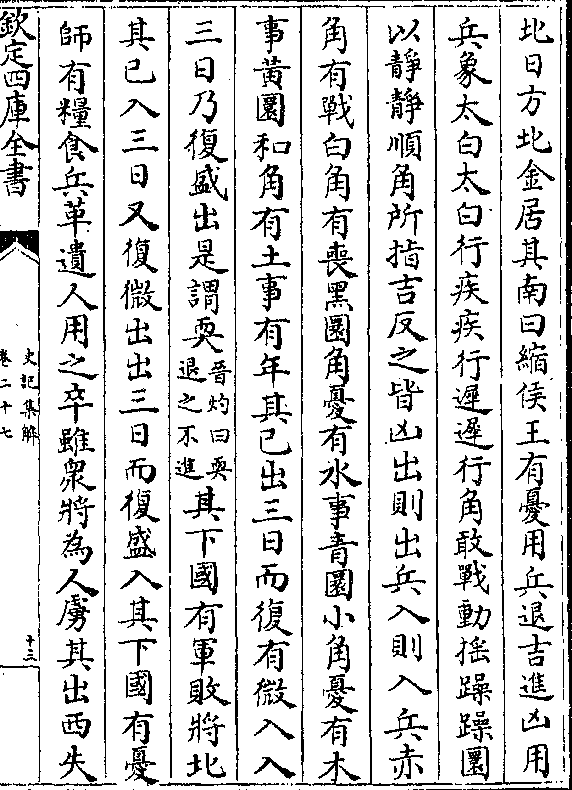 北日方北金居其南曰縮侯王有憂用兵退吉進凶用
兵象太白太白行疾疾行遲遲行角敢戰動揺躁躁圜
以靜靜順角所指吉反之皆凶出則出兵入則入兵赤
角有戰白角有喪黑圜角憂有水事青圜小角憂有木
事黄圜和角有土事有年其已出三日而復有微入入
三日乃復盛出是謂耎晉灼曰耎退之不進其下國有軍敗將北
其已入三日又復微出出三日而復盛入其下國有憂
師有糧食兵革遺人用之卒雖衆將為人虜其出西失
欽定四庫全書
史記集解
卷二十七
十三